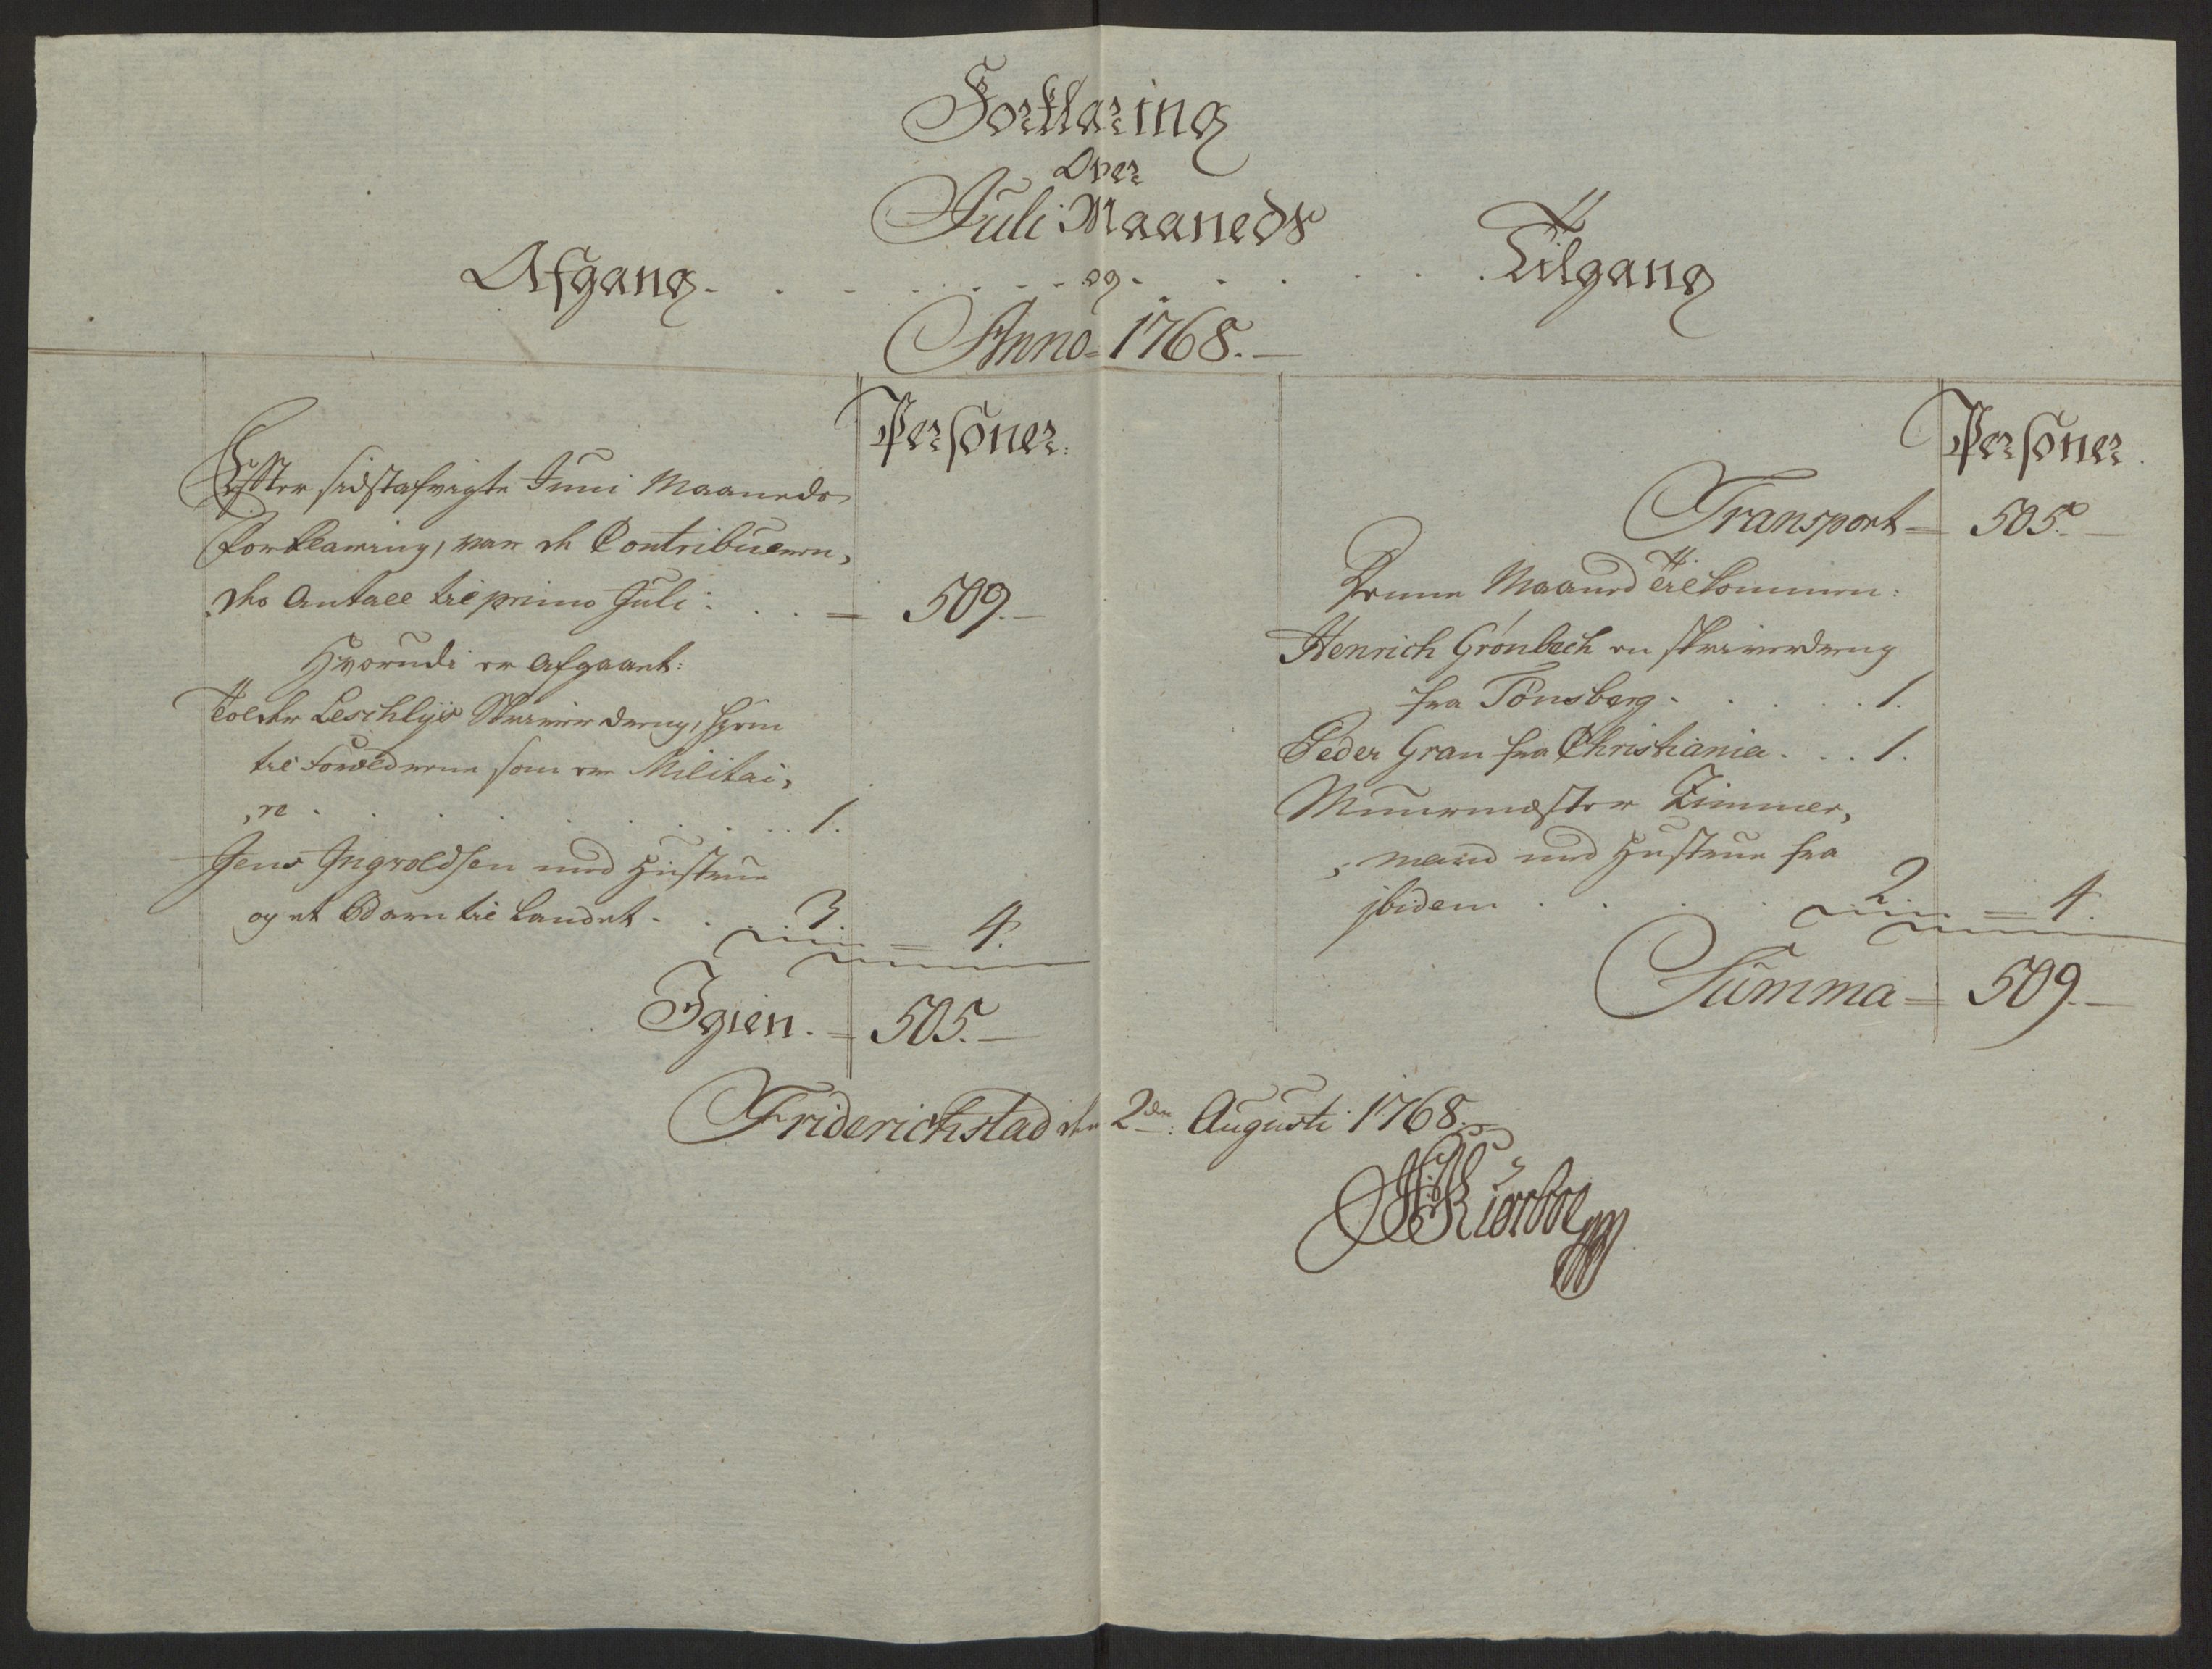 Forklaring
Over
Juli Maaneds
Afgang . . . . . . . og . . . . . . Tilgang
Anno 1768.
Personer.
Effter sidstafvigte Juni Maaneds
Forklaring, var de Contribueren,
des Antall til primo Juli . . . = 509.
Hvorudi er afgaaet:
Tolder Leschlys Skriverdreng, hjem
til Forældrene som er Militai,
,re . . . . . . . . . 1.
Jens Ingvoldsen med Hustrue
og et Barn til Landet . . . 3. = 4.
Igien. = 505.
Personer.
Transport = 505.
Denne Maaned tilkommen:
Henrich Grønbech en skriverdreng
fra Tønsberg . . . . . 1.
Peder Gran fra Christiania . . . 1.
Muurmester Zimmer,
,mand med Hustrue fra
jbidem . . . . . 2. = 4.
Summa = 509.
Friderichstad den 2den Augusti 1768.